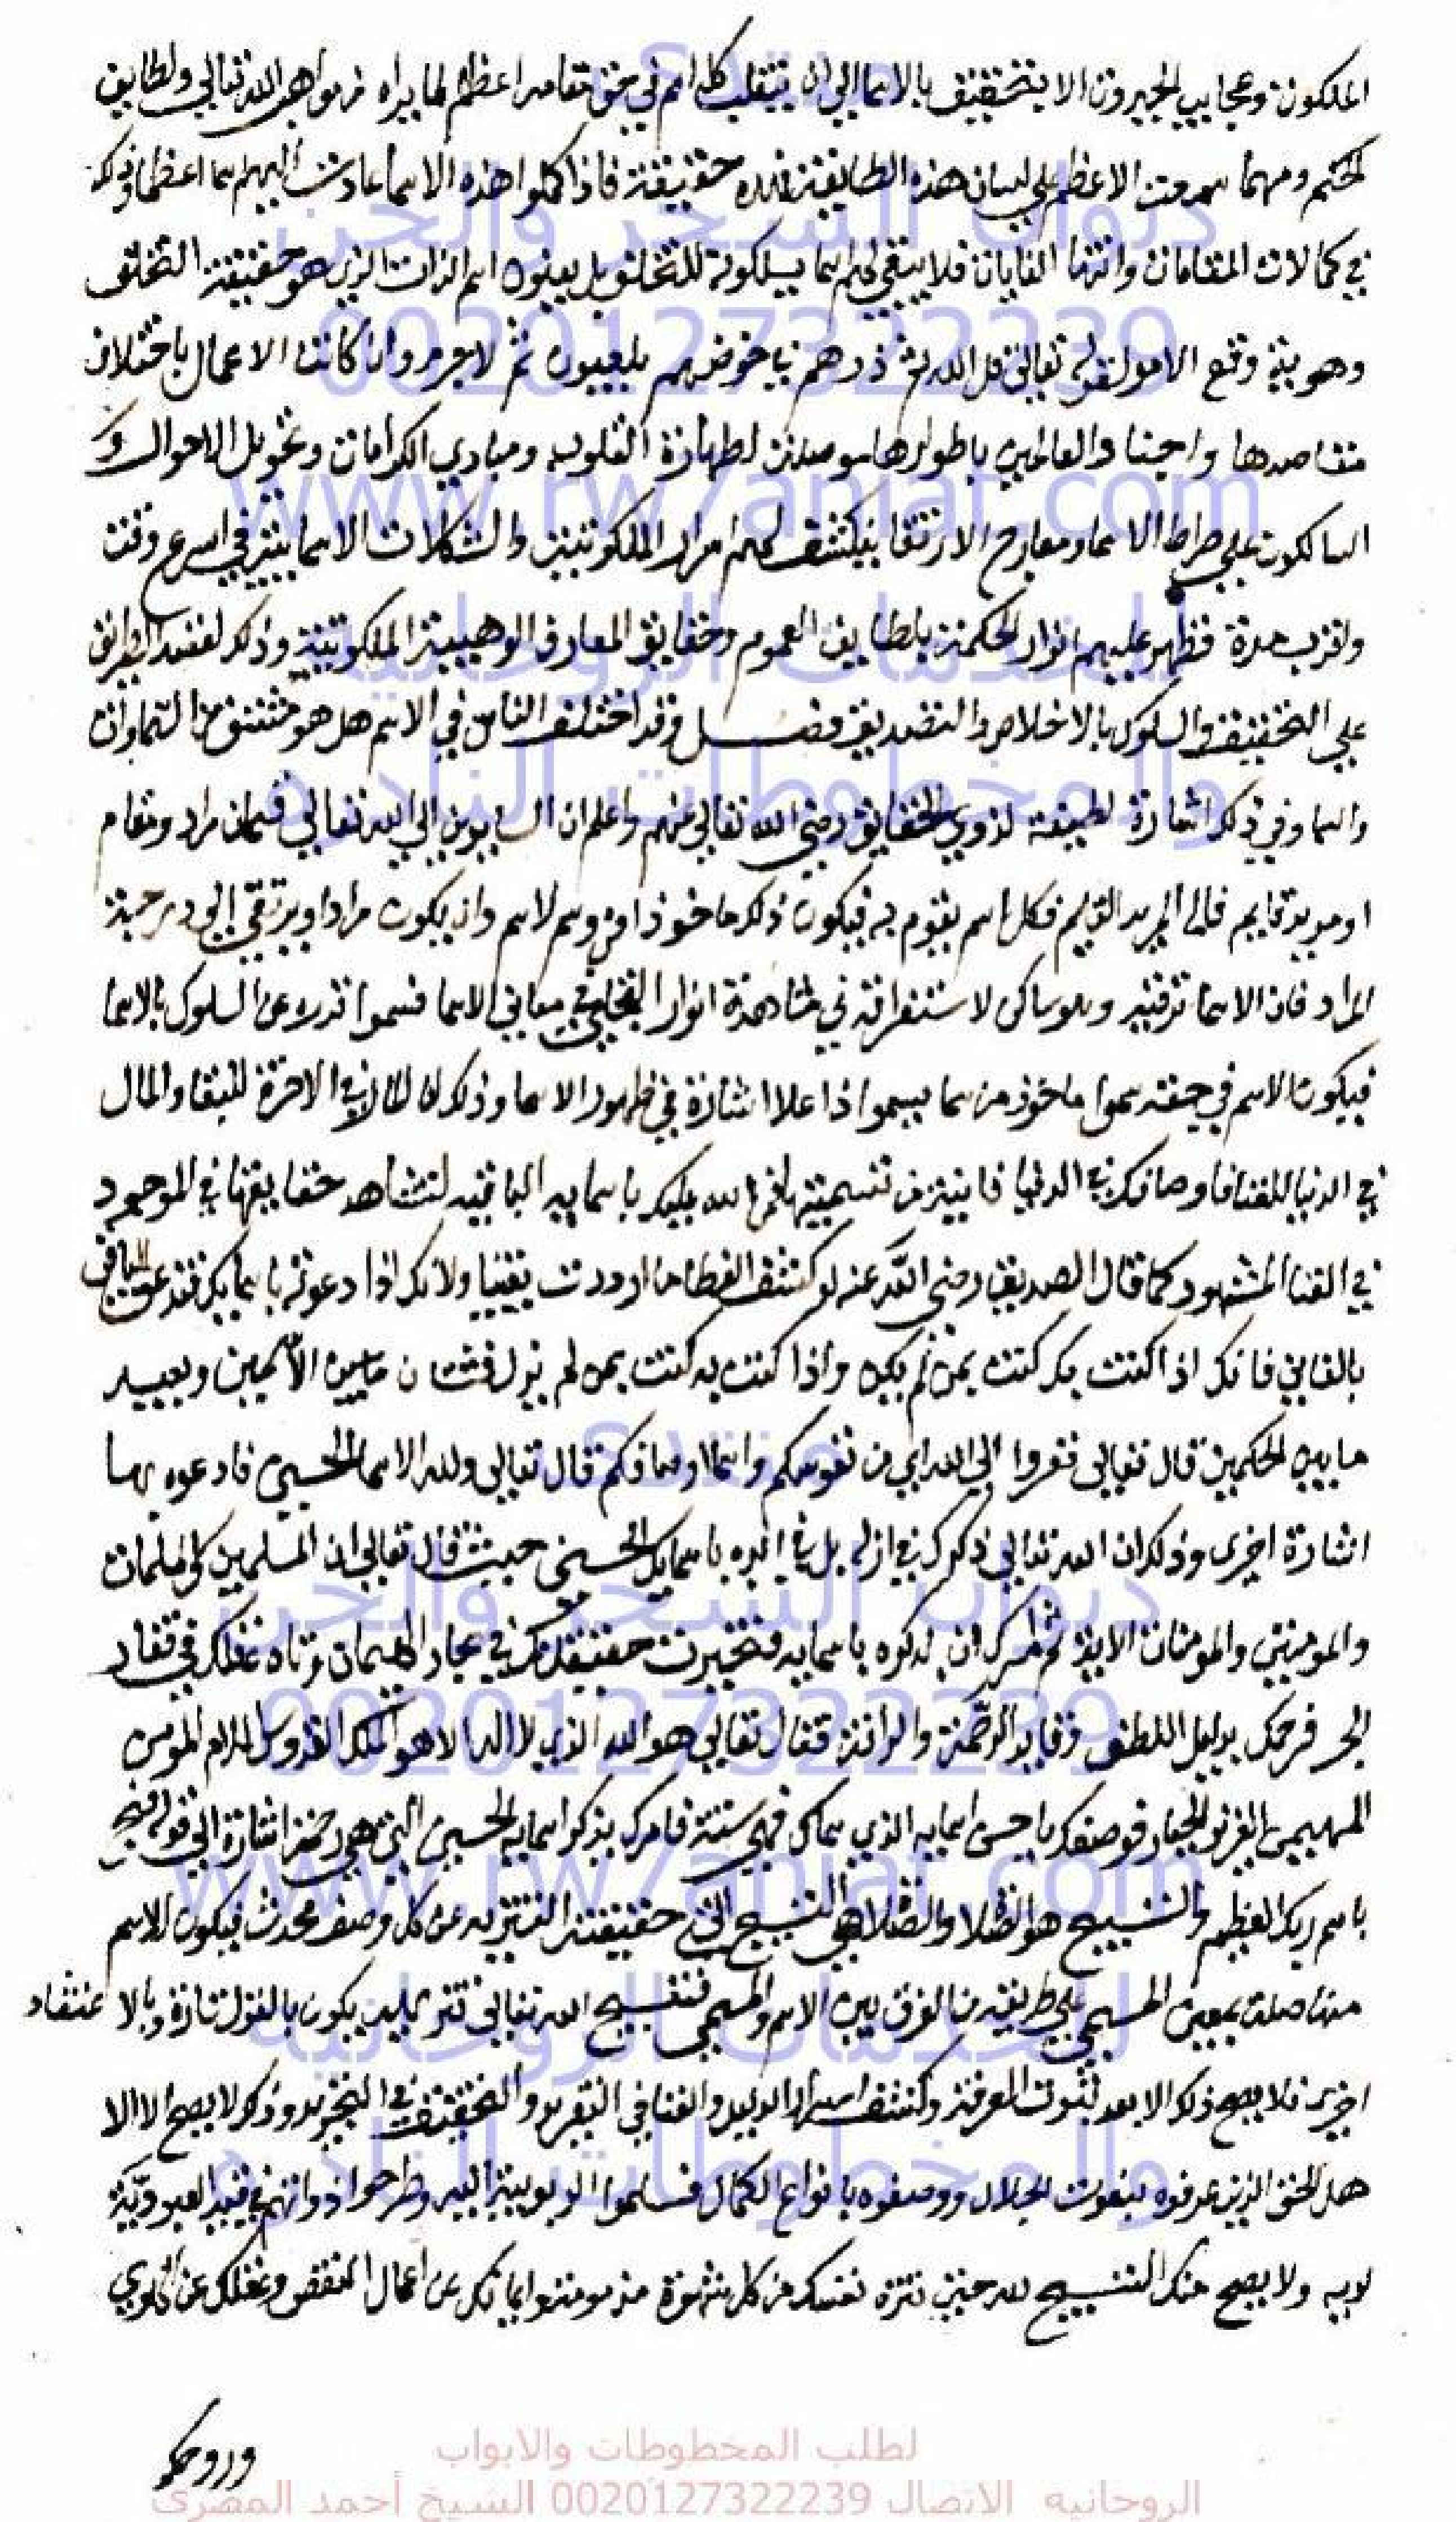 الملكوت وعجايب الجبروت الا بتحقيق بالاسما الي ان ينقلب كل اسم في حق مقامه اعظم لما يراه من مواهب الله تعالي ولطايف
الحكم ومهما سمعت الاعظم علي لسان هذه الطايفة فهذه حقيقة فاذا كملوا هذه الاسما عادت اليهم سما اعظما وذلك
في كمالات المقامات وانتها الغايات فلا يبقي لهم اسما يسلكونه للتخلق بل يعنون اسم الذات الذي هو حقيقة التخلق
وهو بته وقع الامر لقوله تعالي قل الله ثم ذرهم في خوضهم يلعبون ثم لاجرم وان كانت الاعمال باختلاف
مقاصدها واحينا والعالمين باطوارها موصلة لطهارة القلوب ومبادي الكرامات وتحويل الاحوال و
السالكون علي صراط الاسما ومعارج الارتقا ينكشف لهم اسرار الملكوتية والشكلات الاسمايية في اسرع وقت
واقرب مدة فظهر عليهم انوار الحكمة بلطايف العموم وحقايق المعارف الوهبية الملكوتية وذلك لقصد الطريق
علي التحقيق والسلوك بالاخلاص والتصديق فصل وقد اختلف الناس في الاسم هل هو مشتق من السماوات
والسما وفي ذلك اشارة لطيفة لذوي الحقايق رضي الله تعالي عنهم واعلم ان السايرين الي الله تعالي قسمان مراد ومقام
او مريد قايم فاما المريد القايم فكل اسم يقوم به فيكون ذلك ماخوذا من وسم الاسم وان يكون مرادا ويرتقي الي درجة
المراد فان الاسما ترقيه وهو ساكن لاستغراقه في مشاهدة انوار التجلي في معاني الاسما فسموا قدره عن السلوك بالاسما
فيكون الاسم في حقه سموا ماخوذ من سما يسموا اذا علا اشارة في ظهور الاسما وذلك لما كانت الاخرة للبقا والمال
في الدنيا للفنا فاوصافك في الدنيا فانية من تسميتها فمن الله عليك باسمايه الباقية لتشاهد حقايقها في الموجود
في الفنا المشهود كما قال الصديق رضي الله عنه لو كشف الغطا ما ازددت يقينا ولانك اذا دعوته باسمايك فقد دعوت الباقي
بالفاني فانك اذا كنت بك كنت بمن لم يكن واذا كنت به كنت بمن لم يزل فشتان مابين الاسمين وبعيد
مابين الحكمين قال تعالي ففروا الي الله اي من نفوسكم واسما اوصافكم قال تعالي ولله الاسما الحسني فادعوه بها
اشارة اخري وذلك ان الله تعالي ذكرك في ازله بل في ابده باسمايك الحسني حيث قال تعالي ان المسلمين والمسلمات
والمومنين والمومنات الاية ثم امرك ان تدكره باسمايه فتحيرت حقيقتك في بحار الهيمان وتاه عقلك في قفار
الحر فرحمك بدليل اللطف وقايد الرحمة والرافة فقال تعالي هو الله الذي لا اله الا هو الملك القدوس السلام المومن
المهيمن العزيز الجبار فوصفك باحسن اسمايه الذي سماك فهي ستة فامرك بذكر اسمايه الحسني التي هي اشارة الي قوله فسبح
باسم ربك العظيم والتسبيح هو الصلاة والصلاة هي التسبيح التي حقيقتها التنزيه عن كل وصف محدث فيكون الاسم
متاصلا بمعين المسمي علي طريقة من الفرق بين الاسم والمسمي فتسبيح الله تعالي تنزيهه يكون بالقول تارة وبالاعتقاد
اخري فلا يصح ذلك الا بعد ثبوت المعرفة وكشف اسرار الدليل والفنا في التفريد والتحقيق في التجريد وذلك لا يصح الا لا
هل الحق الذين عرفوه بنعوت الجلال ووصفوه بانواع الكمال فسلموا الربوبية اليه وطرحوا ذواتهم في قيد العبودية
لربه ولا يصح منك التسبيح لله حتي تنزه نفسك من كل شهوة مذمومة وايمانك عن اعمال النقص وعقلك عن الهوي
وروحك
منتدى
ديوان السحر والجن
0020127322239
www.rw7aniat.com
للخدمات الروحانية
والمخطوطات النادره
منتدى
ديوان السحر والجن
0020127322239
www.rw7aniat.com
للخدمات الروحانية
والمخطوطات النادره
لطلب المخطوطات والابواب
الروحانيه الاتصال 0020127322239 الشيخ أحمد المصرى